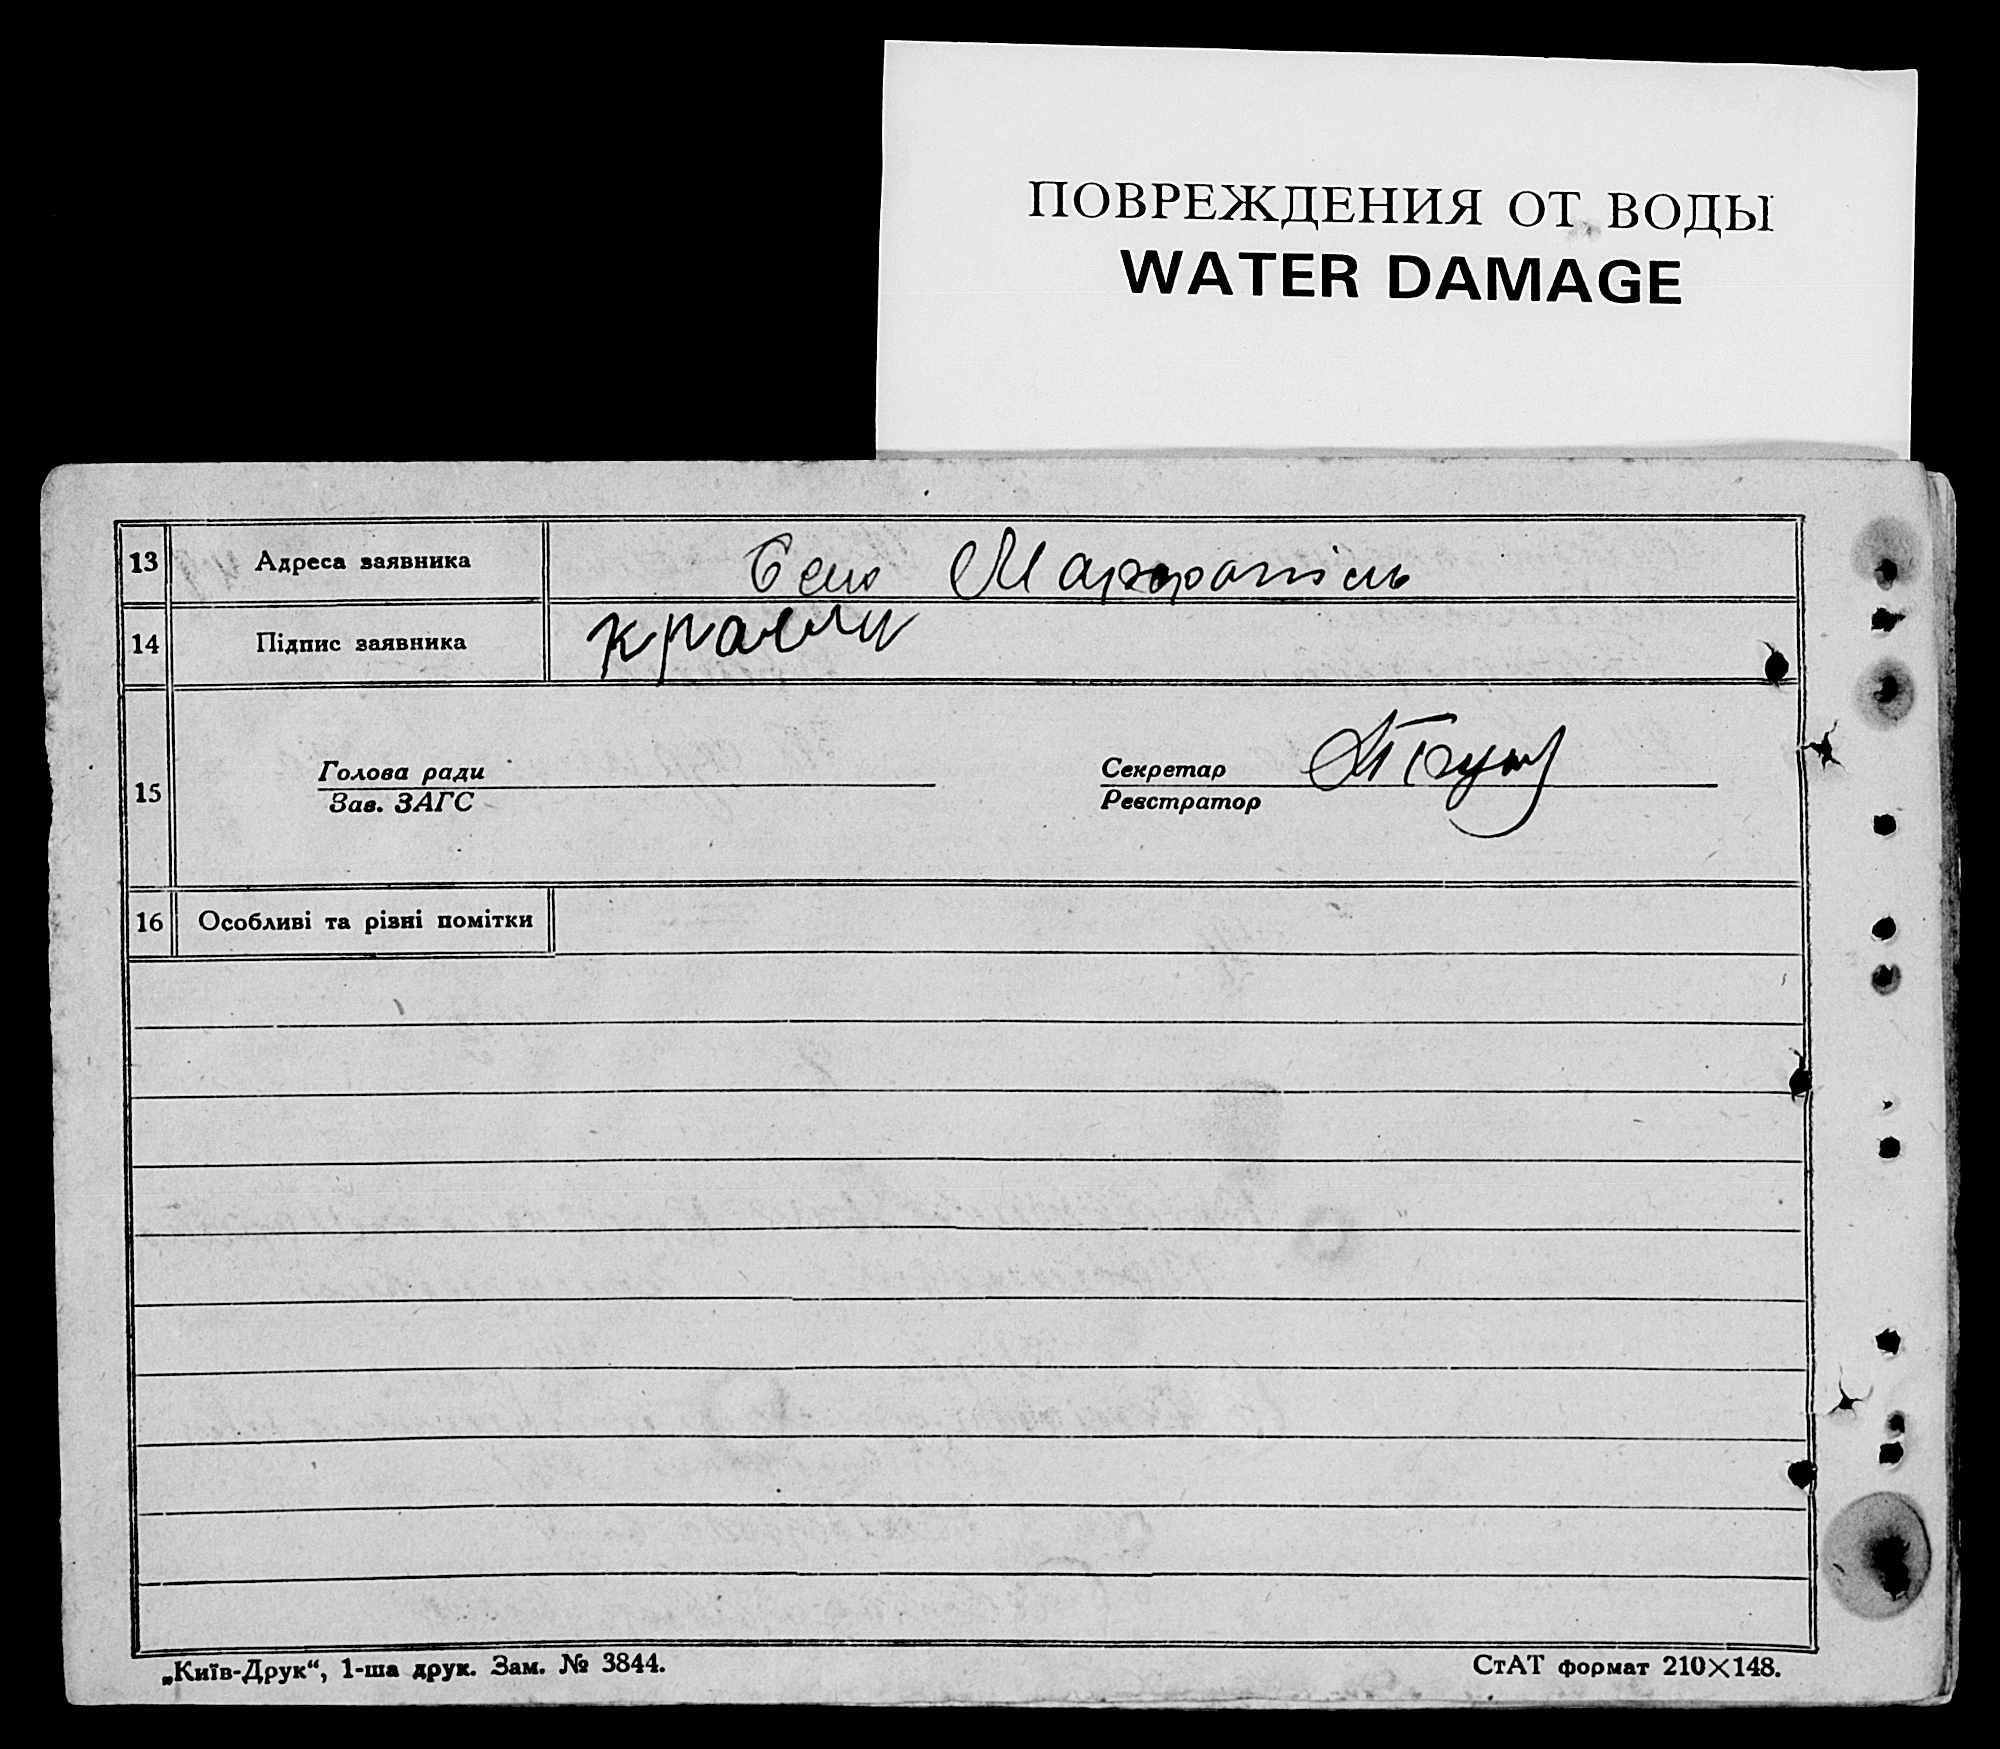 ПОВРЕЖДЕНИЯ ОТ ВОДЫ
WATER DAMAGE
13 Адреса заявника Село
14 Підпис заявника
15 Голова ради Секретар
Зав. ЗАГС Реєстратор
16 Особливі та різні помітки
„Київ-Друк“, 1-ша друк. Зам. № 3844. СтАТ формат 210×148.